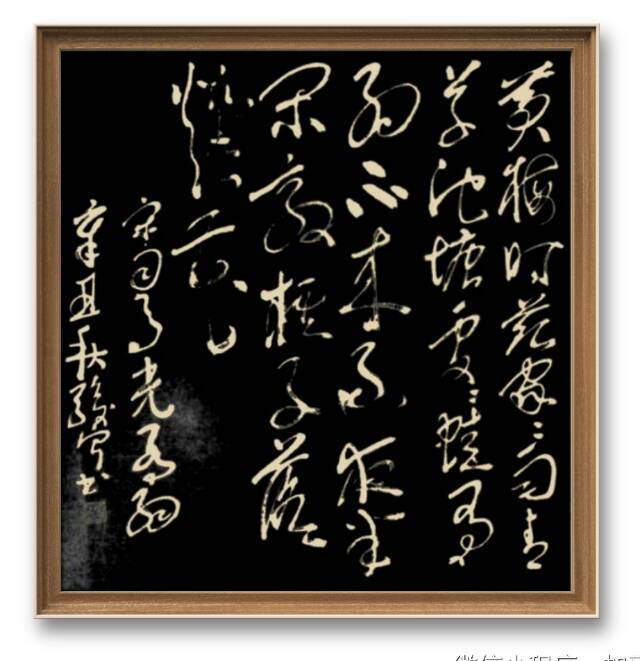 黄梅时节家家雨青
草池塘处处蛙有
约不来过夜半
闲敲棋子落
灯花
宋司马光有约
辛丑秋书